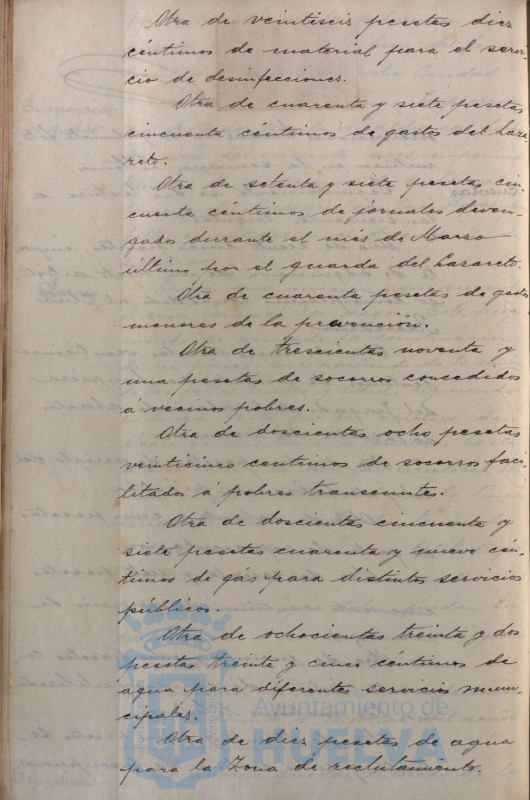 Otra de veintiseis pesetas diez
céntimos de material para el servi-
cio de desinfecciones.
Otra de cuarenta y siete pesetas
cincuenta céntimos de gastos del Laza
reto.
Otra de setenta y siete pesetas cin-
cuenta céntimos de jornales deven-
gados durante el més de Marzo
último por el guarda del Lazareto.
Otra de cuarenta pesetas de gastos
menores de la prevención.
Otra de trescientas noventa y
una pesetas de socorros concedidos
á vecinos pobres.
Otra de doscientas ocho pesetas
veinticinco centimos de socorros faci-
litados á pobres transeuntes.
Otra de doscientas cincuenta y
siete pesetas cuarenta y nueve cén-
timos de gas para distintos servicios
públicos.
Otra de ochocientas treinta y dos
pesetas treinta y cinco céntimos de
agua para diferentes servicios muni-
cipales.
Otra de diez pesetas de agua
para la Zona de reclutamiento.
Ayuntamiento de
HUELVA